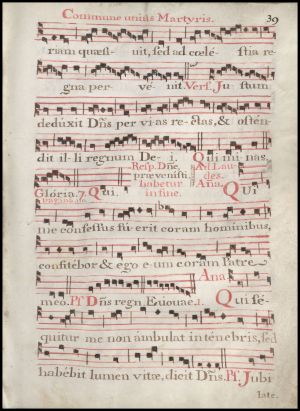 Commune unius Martyris. 39
riam quæsi- vit, sed ad cœle- stia re-
gna per- ve- nit. Vers. Ju- stum
dedúxit Dñs per vi as re- ctas, & ostén-
dit il- li regnum De- i. Qui mi nas.
Resp. Dñe, prevenisti. habetur in fine.
Ad Laudes. Ana.
Glória. 7. Qui. QUi
me confessus fú- erit coram homínibus,
confitébor & ego e- um coram Patre
meo. Ps. Dñs regn. Euouae. 1. Ana QUi sé-
quitur me non ámbulat in ténebris, sed
habébit lumen vitæ, dicit Dñs. Ps. Jubi
late.